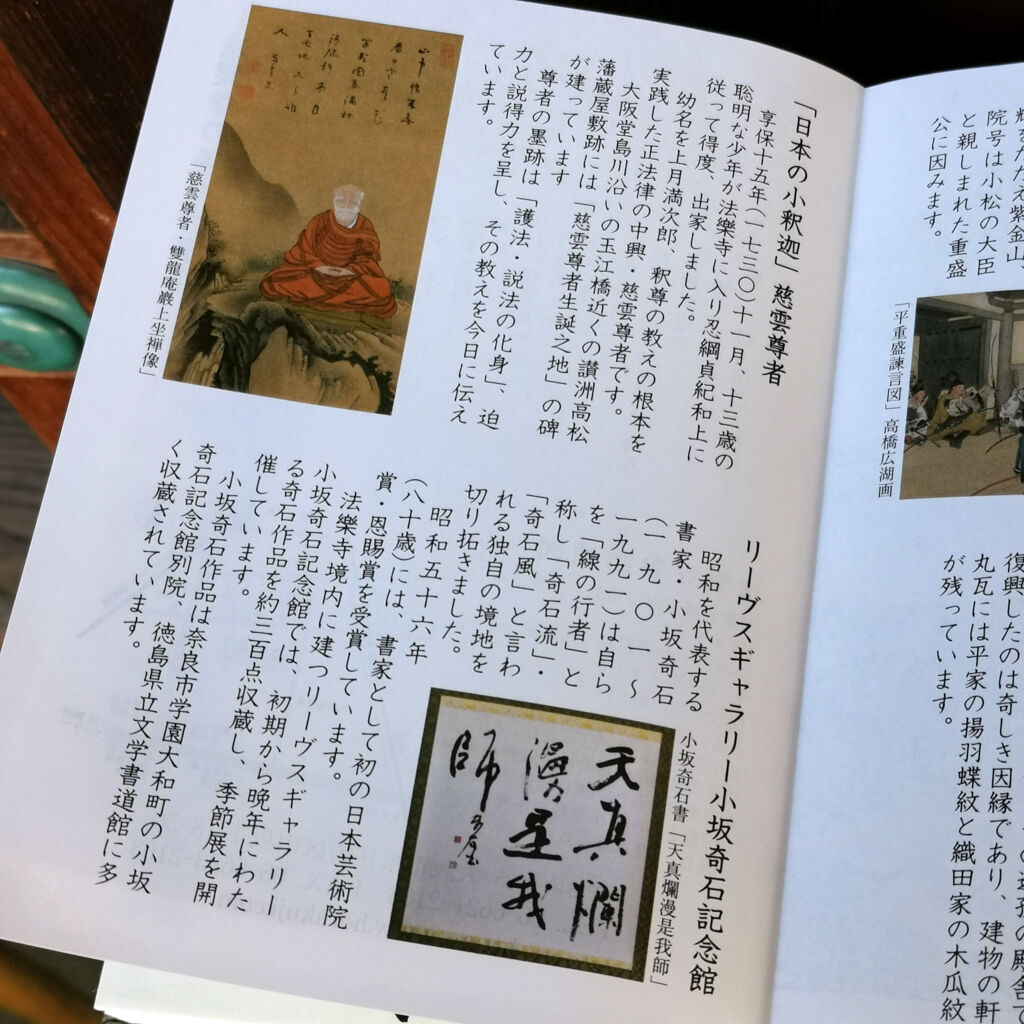 輝をたたえ紫金山、
院号は小松の大臣
と親しまれた重盛
公に因みます。
「平重盛諫言図」高橋広湖画
復興したのは奇しき因縁であり、建物の軒
丸瓦には平家の揚羽蝶紋と織田家の木瓜紋
が残っています。
「日本の小釈迦」慈雲尊者
享保十五年(一七三〇)十一月、十三歳の
聡明な少年が法樂寺に入り忍綱貞紀和上に
従って得度、出家しました。
幼名を上月満次郎、釈尊の教えの根本を
実践した正法律の中興・慈雲尊者です。
大阪堂島川沿いの玉江橋近くの讃洲高松
藩蔵屋敷跡には「慈雲尊者生誕之地」の碑
が建っています
尊者の墨跡は「護法・説法の化身」、迫
力と説得力を呈し、その教えを今日に伝え
ています。
「慈雲尊者・雙龍庵巌上坐禅像」
リーヴスギャラリー小坂奇石記念館
昭和を代表する
書家・小坂奇石
(一九〇一〜
一九九一)は自ら
を「線の行者」と
称し「奇石流」・
「奇石風」と言わ
れる独自の境地を
切り拓きました。
昭和五十六年
(八十歳)には、書家として初の日本芸術院
賞・恩賜賞を受賞しています。
法樂寺境内に建つリーヴスギャラリー
小坂奇石記念館では、初期から晩年にわた
る奇石作品を約三百点収蔵し、季節展を開
催しています。
小坂奇石作品は奈良市学園大和町の小坂
奇石記念館別院、徳島県立文学書道館に多
く収蔵されています。
小坂奇石書「天真爛漫是我師」
天真爛
漫是我
師